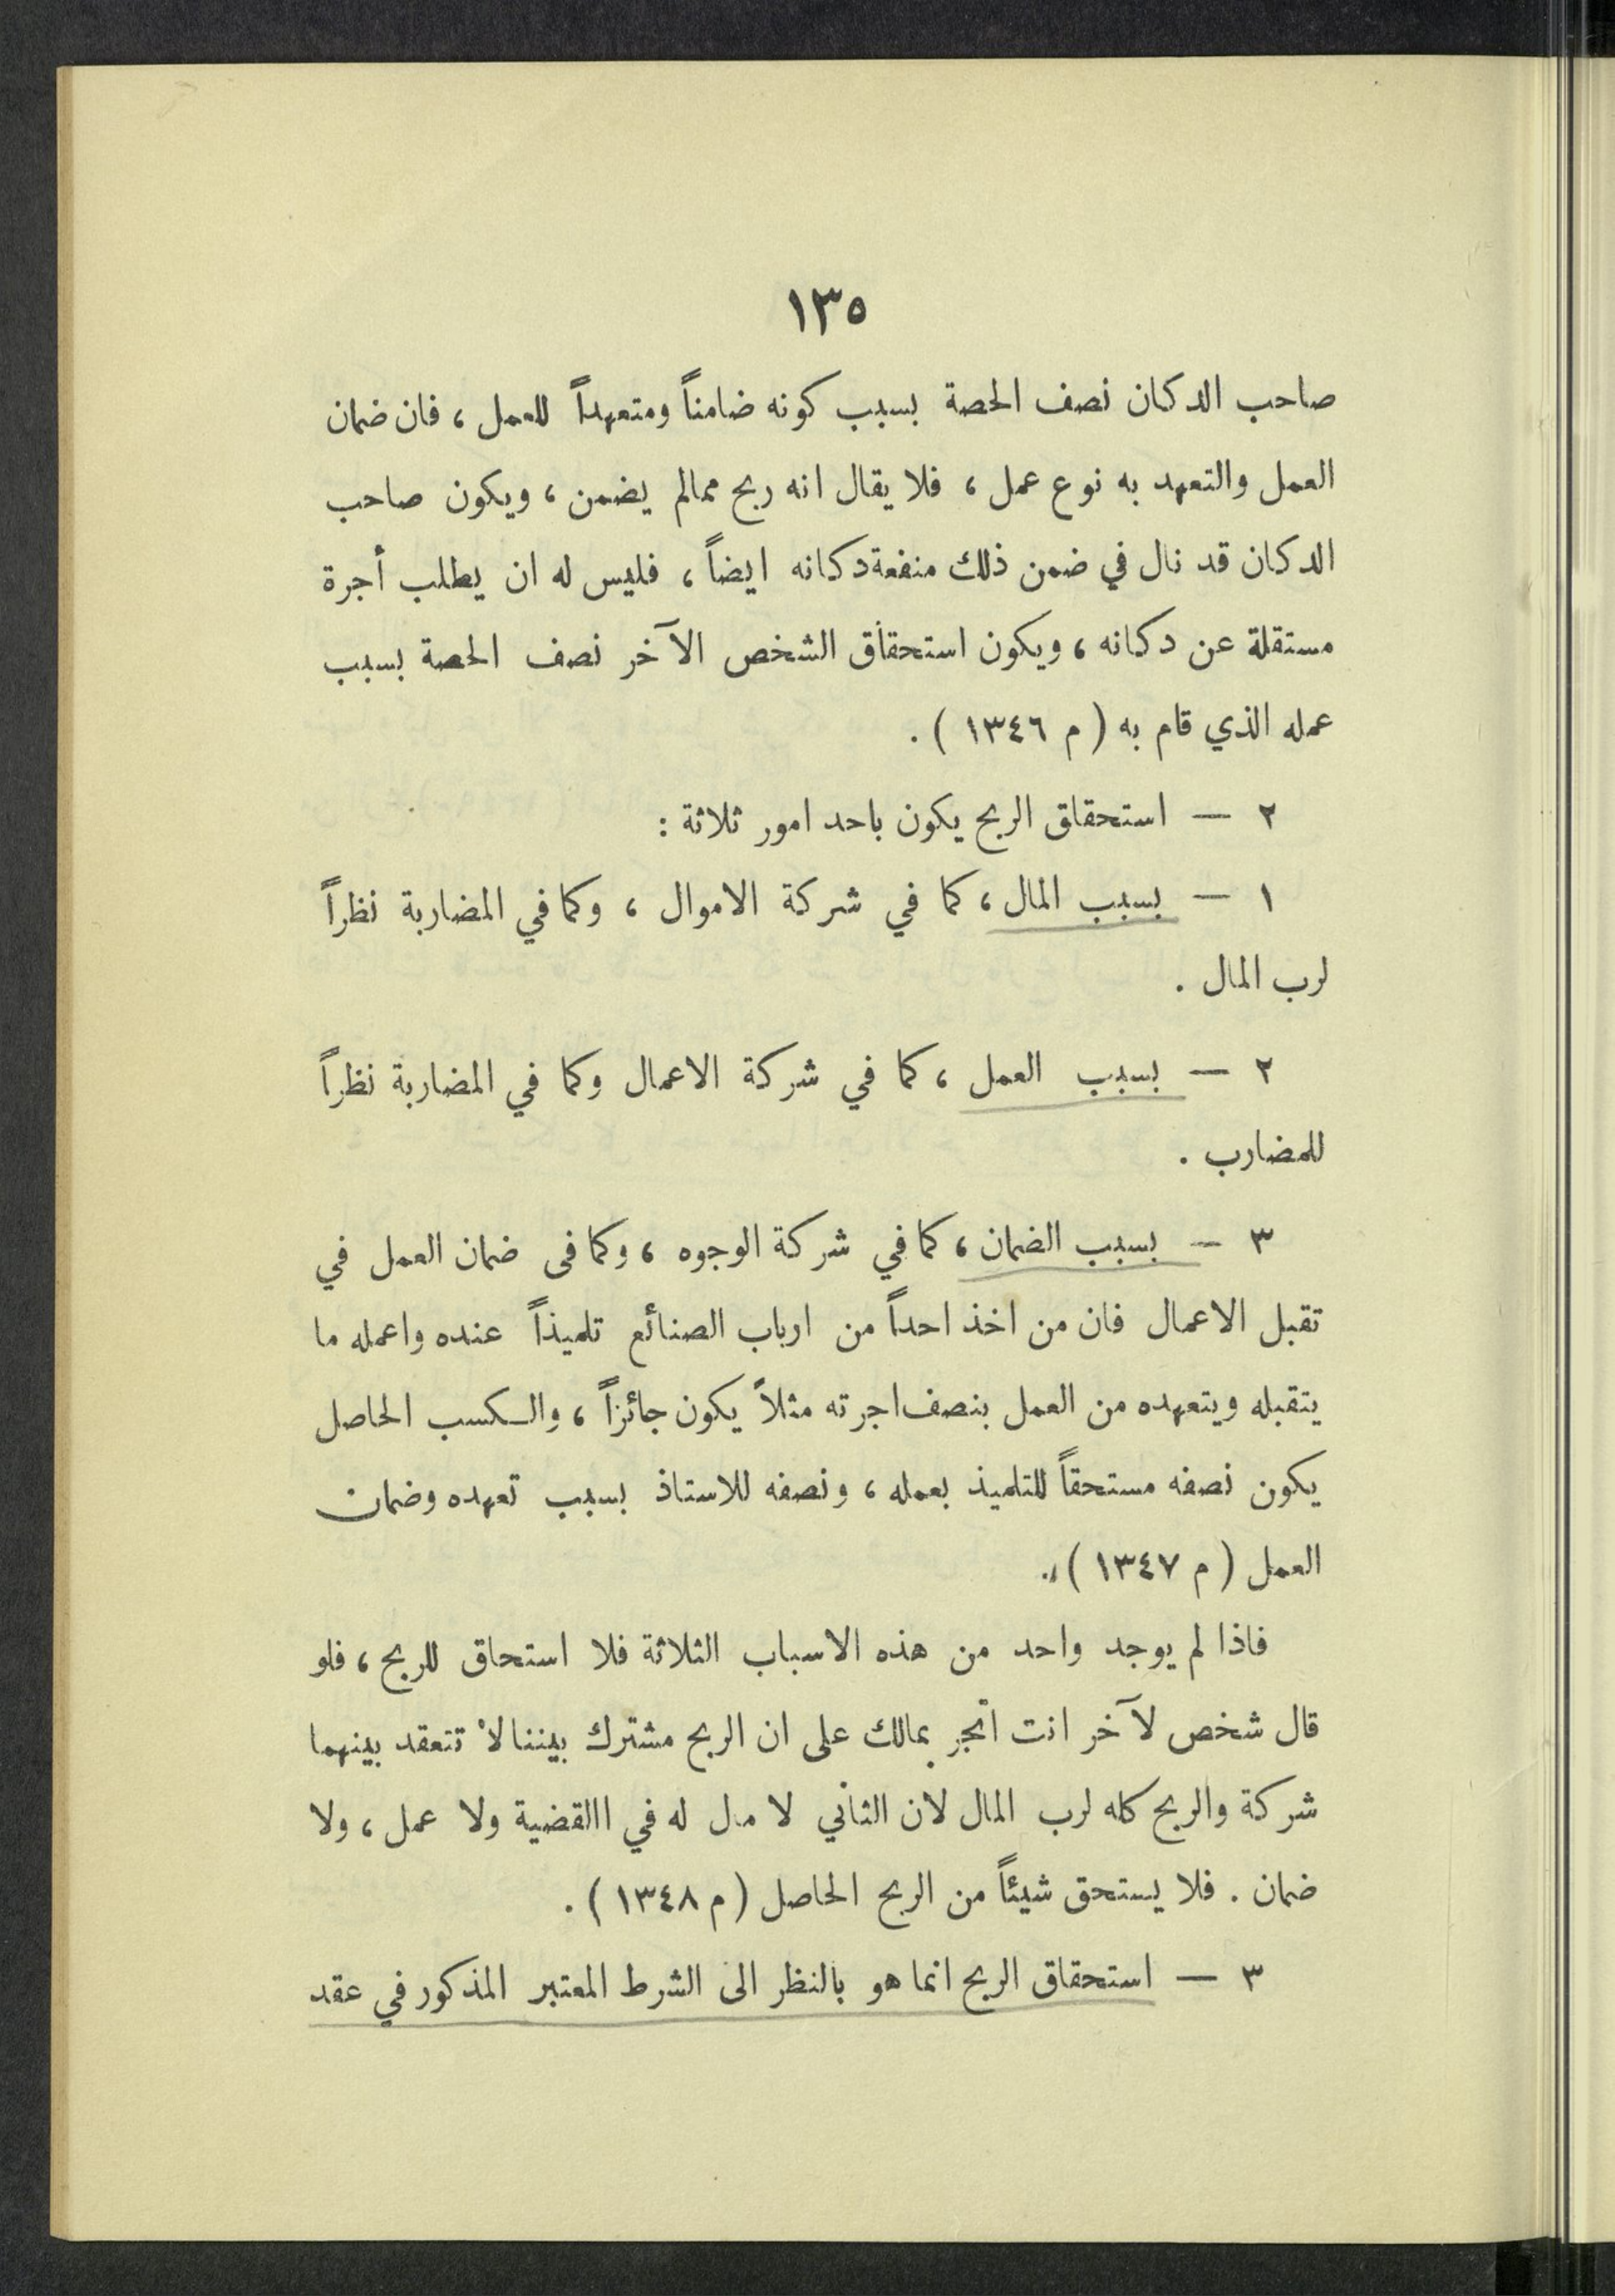 ١٣٥
صاحب الدكان نصف الحصة بسبب كونه ضامناً ومتعهداً للعمل ، فان ضمان
العمل والتعهد به نوع عمل ، فلا يقال انه ربح ممالم يضمن ، ويكون صاحب
الدكان قد نال في ضمن ذلك منفعة دكانه ايضاً ، فليس له ان يطلب أجرة
مستقلة عن دكانه ، ويكون استحقاق الشخص الآخر نصف الحصة بسبب
عمله الذي قام به ( م ١٣٤٦ ) .
٢ — استحقاق الربح يكون باحد امور ثلاثة :
١ — بسبب المال ، كما في شركة الاموال ، وكما في المضاربة نظراً
لرب المال .
٢ — بسبب العمل ، كما في شركة الاعمال وكما في المضاربة نظراً
للمضارب .
٣ — بسبب الضمان ، كما في شركة الوجوه ، وكما فى ضمان العمل في
تقبل الاعمال فان من اخذ احداً من ارباب الصنائع تلميذاً عنده واعمله ما
يتقبله ويتعهده من العمل بنصف اجرته مثلاً يكون جائزاً ، والكسب الحاصل
يكون نصفه مستحقاً للتلميذ بعمله ، ونصفه للاستاذ بسبب تعهده وضمان
العمل ( م ١٣٤٧ ) .
فاذا لم يوجد واحد من هذه الاسباب الثلاثة فلا استحاق للربح ، فلو
قال شخص لآخر انت اتجر بمالك على ان الربح مشترك بيننا لا تنعقد بينهما
شركة والربح كله لرب المال لان الثاني لا مال له في االقضية ولا عمل ، ولا
ضمان . فلا يستحق شيئاً من الربح الحاصل ( م ١٣٤٨ ) .
٣ — استحقاق الربح انما هو بالنظر الى الشرط المعتبر المذكور في عقد